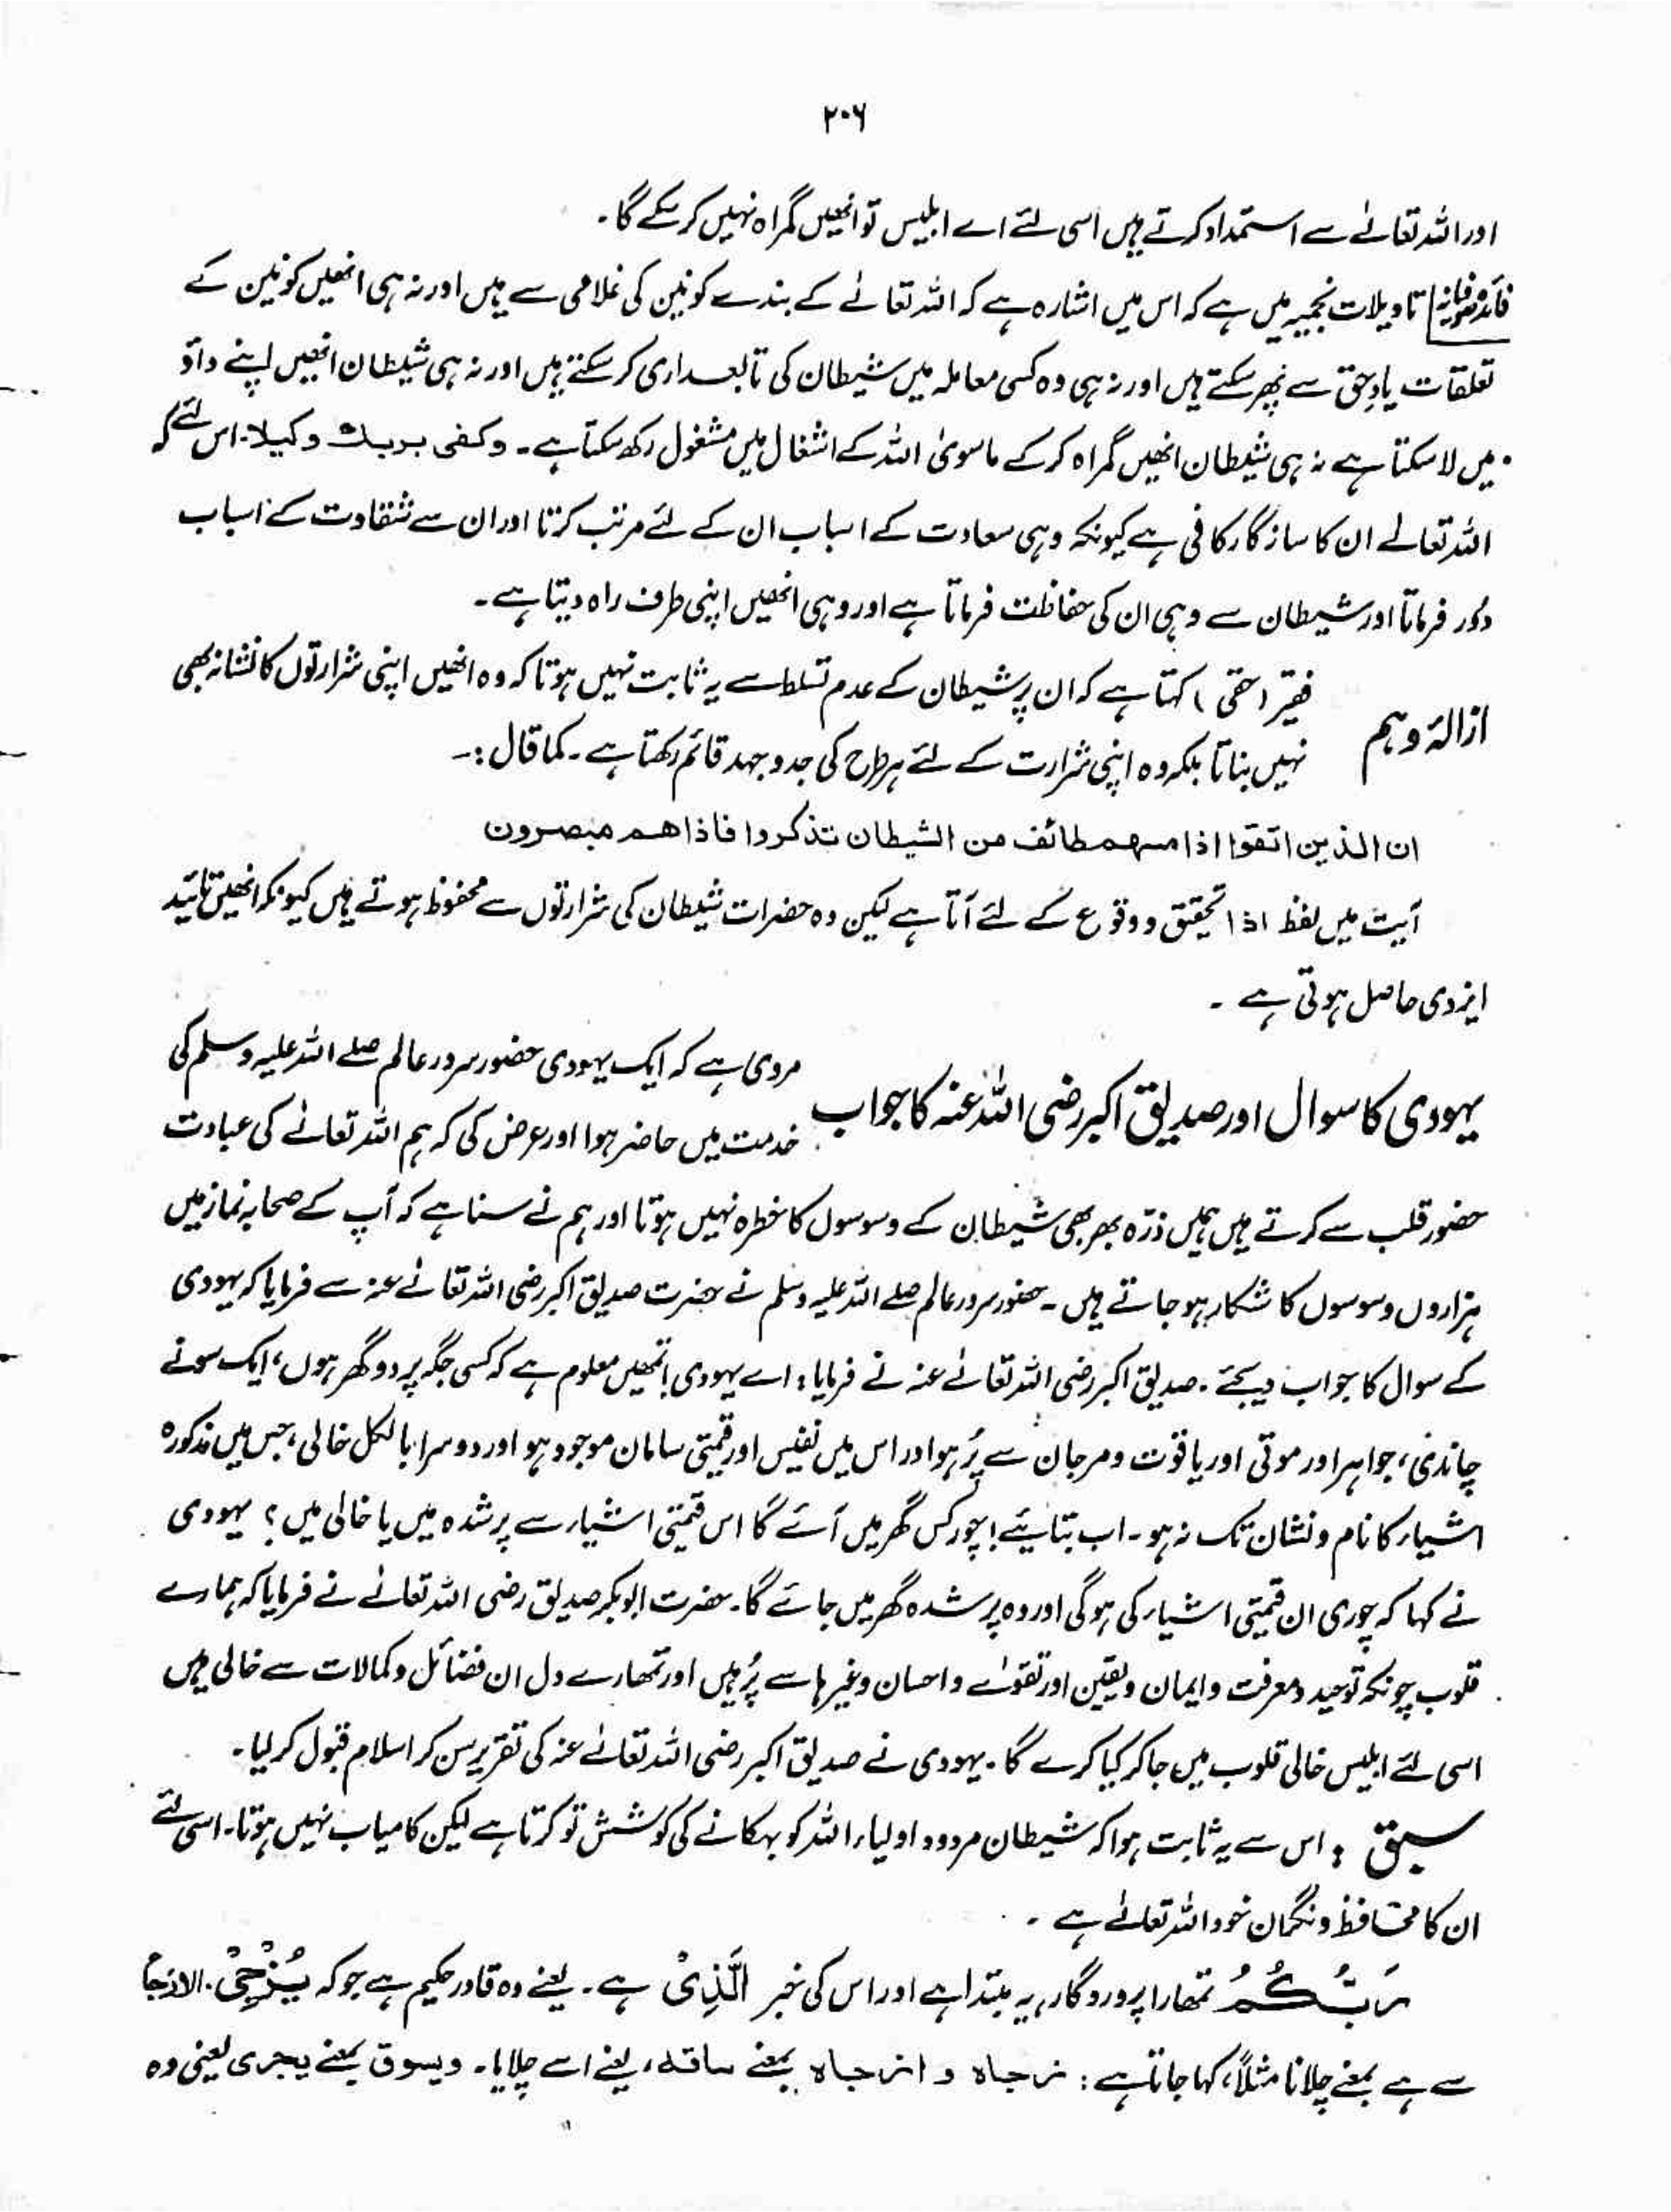 ۲۰۶
اور اللہ تعالےٰ سے استمداد کرتے ہیں اسی لئے اے ابلیس تو انھیں گمراہ نہیں کر سکے گا۔
فائدہ صوفیانہ تاویلات نجمیہ میں ہے کہ اس میں اشارہ ہے کہ اللہ تعالےٰ کے بندے کونین کی غلامی سے ہیں اور نہ ہی انھیں کونین کے
تعلقات یادِ حق سے پھیر سکتے ہیں اور نہ ہی وہ کسی معاملہ میں شیطان کی تابعداری کر سکتے ہیں اور نہ ہی شیطان انھیں اپنے داؤ
میں لا سکتا ہے نہ ہی شیطان انھیں گمراہ کر کے ماسویٰ اللہ کے اشغال میں مشغول رکھ سکتا ہے۔ وکفی بربک وکیلا۔ اس لئے کہ
اللہ تعالےٰ ان کا سازگار کافی ہے کیونکہ وہی سعادت کے اسباب ان کے لئے مرتب کرتا اور ان سے شقاوت کے اسباب
دُور فرماتا اور شیطان سے وہی ان کی حفاظت فرماتا ہے اور وہی انھیں اپنی طرف راہ دیتا ہے۔
ازالۂ وہم فقیر (حقی) کہتا ہے کہ ان پر شیطان کے عدم تسلط سے یہ ثابت نہیں ہوتا کہ وہ انھیں اپنی شرارتوں کا نشانہ بھی
نہیں بناتا بلکہ وہ اپنی شرارت کے لئے ہر طرح کی جدوجہد قائم رکھتا ہے۔ کما قال :۔
ان الذین اتقوا اذا مسھم طائف من الشیطان تذکروا فاذا ھم مبصرون
آیت میں لفظ اذا تحقیق و وقوع کے لئے آتا ہے لیکن وہ حضرات شیطان کی شرارتوں سے محفوظ ہوتے ہیں کیونکہ انھیں تائید
ایزدی حاصل ہوتی ہے ۔
یہودی کا سوال اور صدیق اکبر رضی اللہ عنہ کا جواب مروی ہے کہ ایک یہودی حضور سرور عالم صلے اللہ علیہ وسلم کی
خدمت میں حاضر ہوا اور عرض کی کہ ہم اللہ تعالےٰ کی عبادت
حضور قلب سے کرتے ہیں ہمیں ذرّہ بھر بھی شیطان کے وسوسوں کا خطرہ نہیں ہوتا اور ہم نے سنا ہے کہ آپ کے صحابہ نماز میں
ہزاروں وسوسوں کا شکار ہو جاتے ہیں ۔ حضور سرور عالم صلے اللہ علیہ وسلم نے حضرت صدیق اکبر رضی اللہ تعالےٰ عنہ سے فرمایا کہ یہودی
کے سوال کا جواب دیجئے ۔ صدیق اکبر رضی اللہ تعالےٰ عنہ نے فرمایا : اے یہودی ! تمھیں معلوم ہے کہ کسی جگہ پر دو گھر ہوں، ایک سونے
چاندی، جواہر اور موتی اور یاقوت و مرجان سے پُر ہو اور اس میں نفیس اور قیمتی سامان موجود ہو اور دوسرا بالکل خالی، جس میں مذکورہ
اشیاء کا نام و نشان تک نہ ہو۔ اب بتائیے ! چور کس گھر میں آئے گا اس قیمتی اشیاء سے پر شدہ میں یا خالی میں ؟ یہودی
نے کہا کہ چوری ان قیمتی اشیاء کی ہوگی اور وہ پر شدہ گھر میں جائے گا۔ حضرت ابوبکر صدیق رضی اللہ تعالےٰ نے فرمایا کہ ہمارے
قلوب چونکہ توحید و معرفت و ایمان و یقین اور تقوےٰ و احسان وغیرہا سے پُر ہیں اور تمھارے دل ان فضائل و کمالات سے خالی ہیں
اسی لئے ابلیس خالی قلوب میں جا کر کیا کرے گا ۔ یہودی نے صدیق اکبر رضی اللہ تعالےٰ عنہ کی تقریر سن کر اسلام قبول کر لیا ۔
سبق : اس سے یہ ثابت ہوا کہ شیطان مردود اولیاء اللہ کو بہکانے کی کوشش تو کرتا ہے لیکن کامیاب نہیں ہوتا۔ اسی لئے
ان کا محافظ و نگہبان خود اللہ تعالےٰ ہے ۔
رَبُّکُمُ تمھارا پروردگار، یہ مبتدا ہے اور اس کی خبر الَّذِیْ ہے ۔ یعنے وہ قادر حکیم ہے جو کہ یُزْجِیْ ۔ الازجاء
سے ہے بمعنے چلانا مثلاً کہا جاتا ہے : زجاہ و ازجاہ بمعنے ساقہ، یعنے اسے چلایا۔ ویسوق بمعنے یجری یعنی وہ